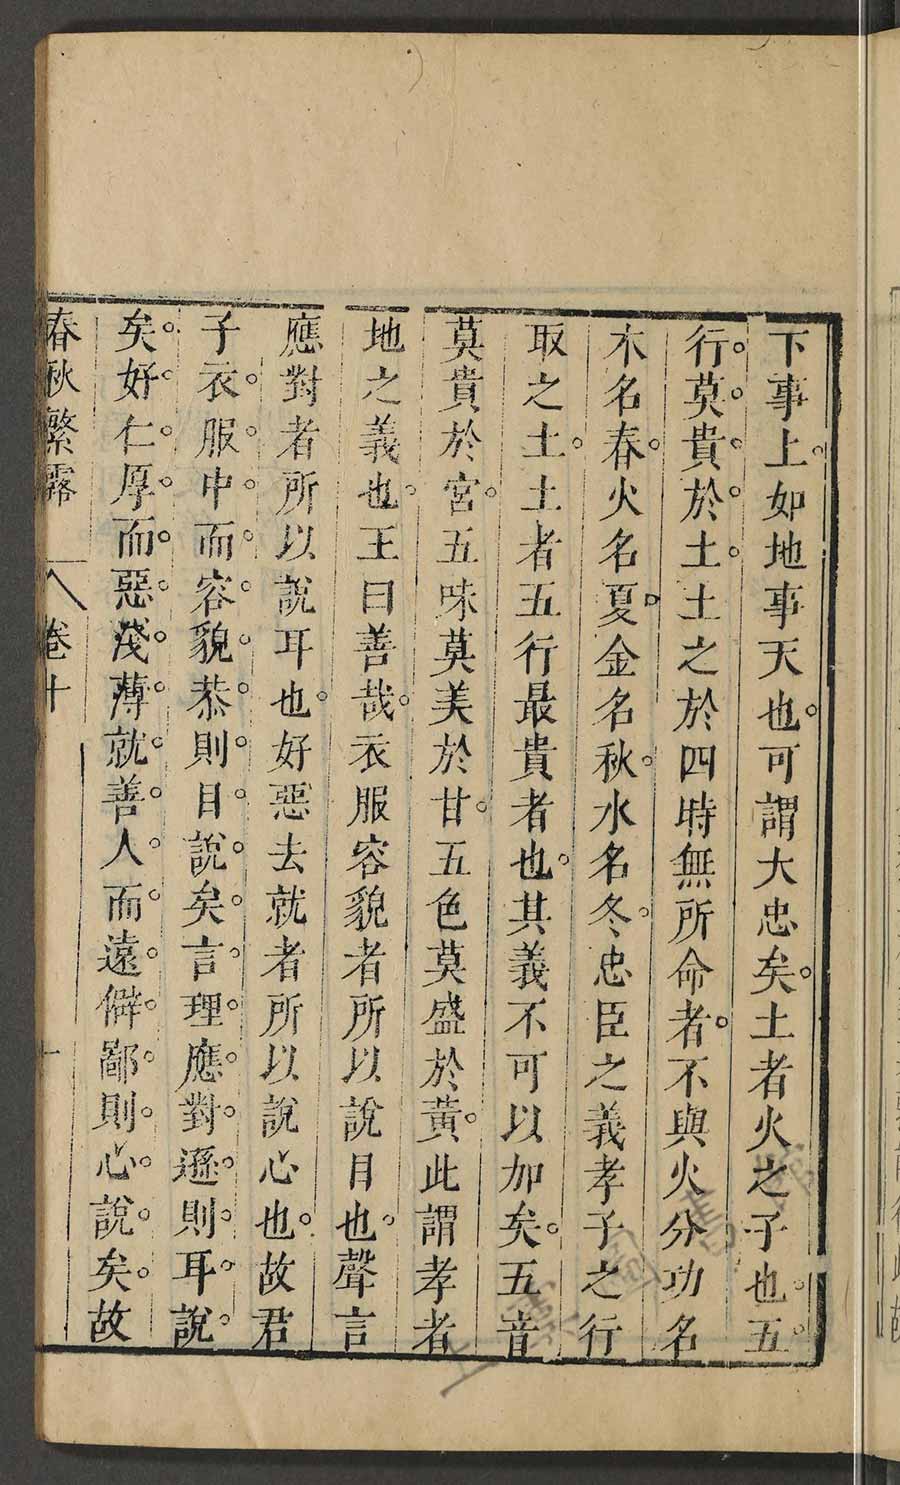 下事上如地事天也可謂大忠矣土者火之子也五
行莫貴於土土之於四時無所命者不與火分功名
木名春火名夏金名秋水名冬忠臣之義孝子之行
取之土土者五行最貴者也其義不可以加矣五音
莫貴於宮五味莫美於甘五色莫盛於黃此謂孝者
地之義也王曰善哉衣服容貌者所以說目也聲言
應對者所以說耳也好惡去就者所以說心也故君
子衣服中而容貌恭則目說矣言理應對遜則耳說
矣好仁厚而惡淺薄就善人而遠僻鄙則心說矣故
春秋繁露 卷十 十